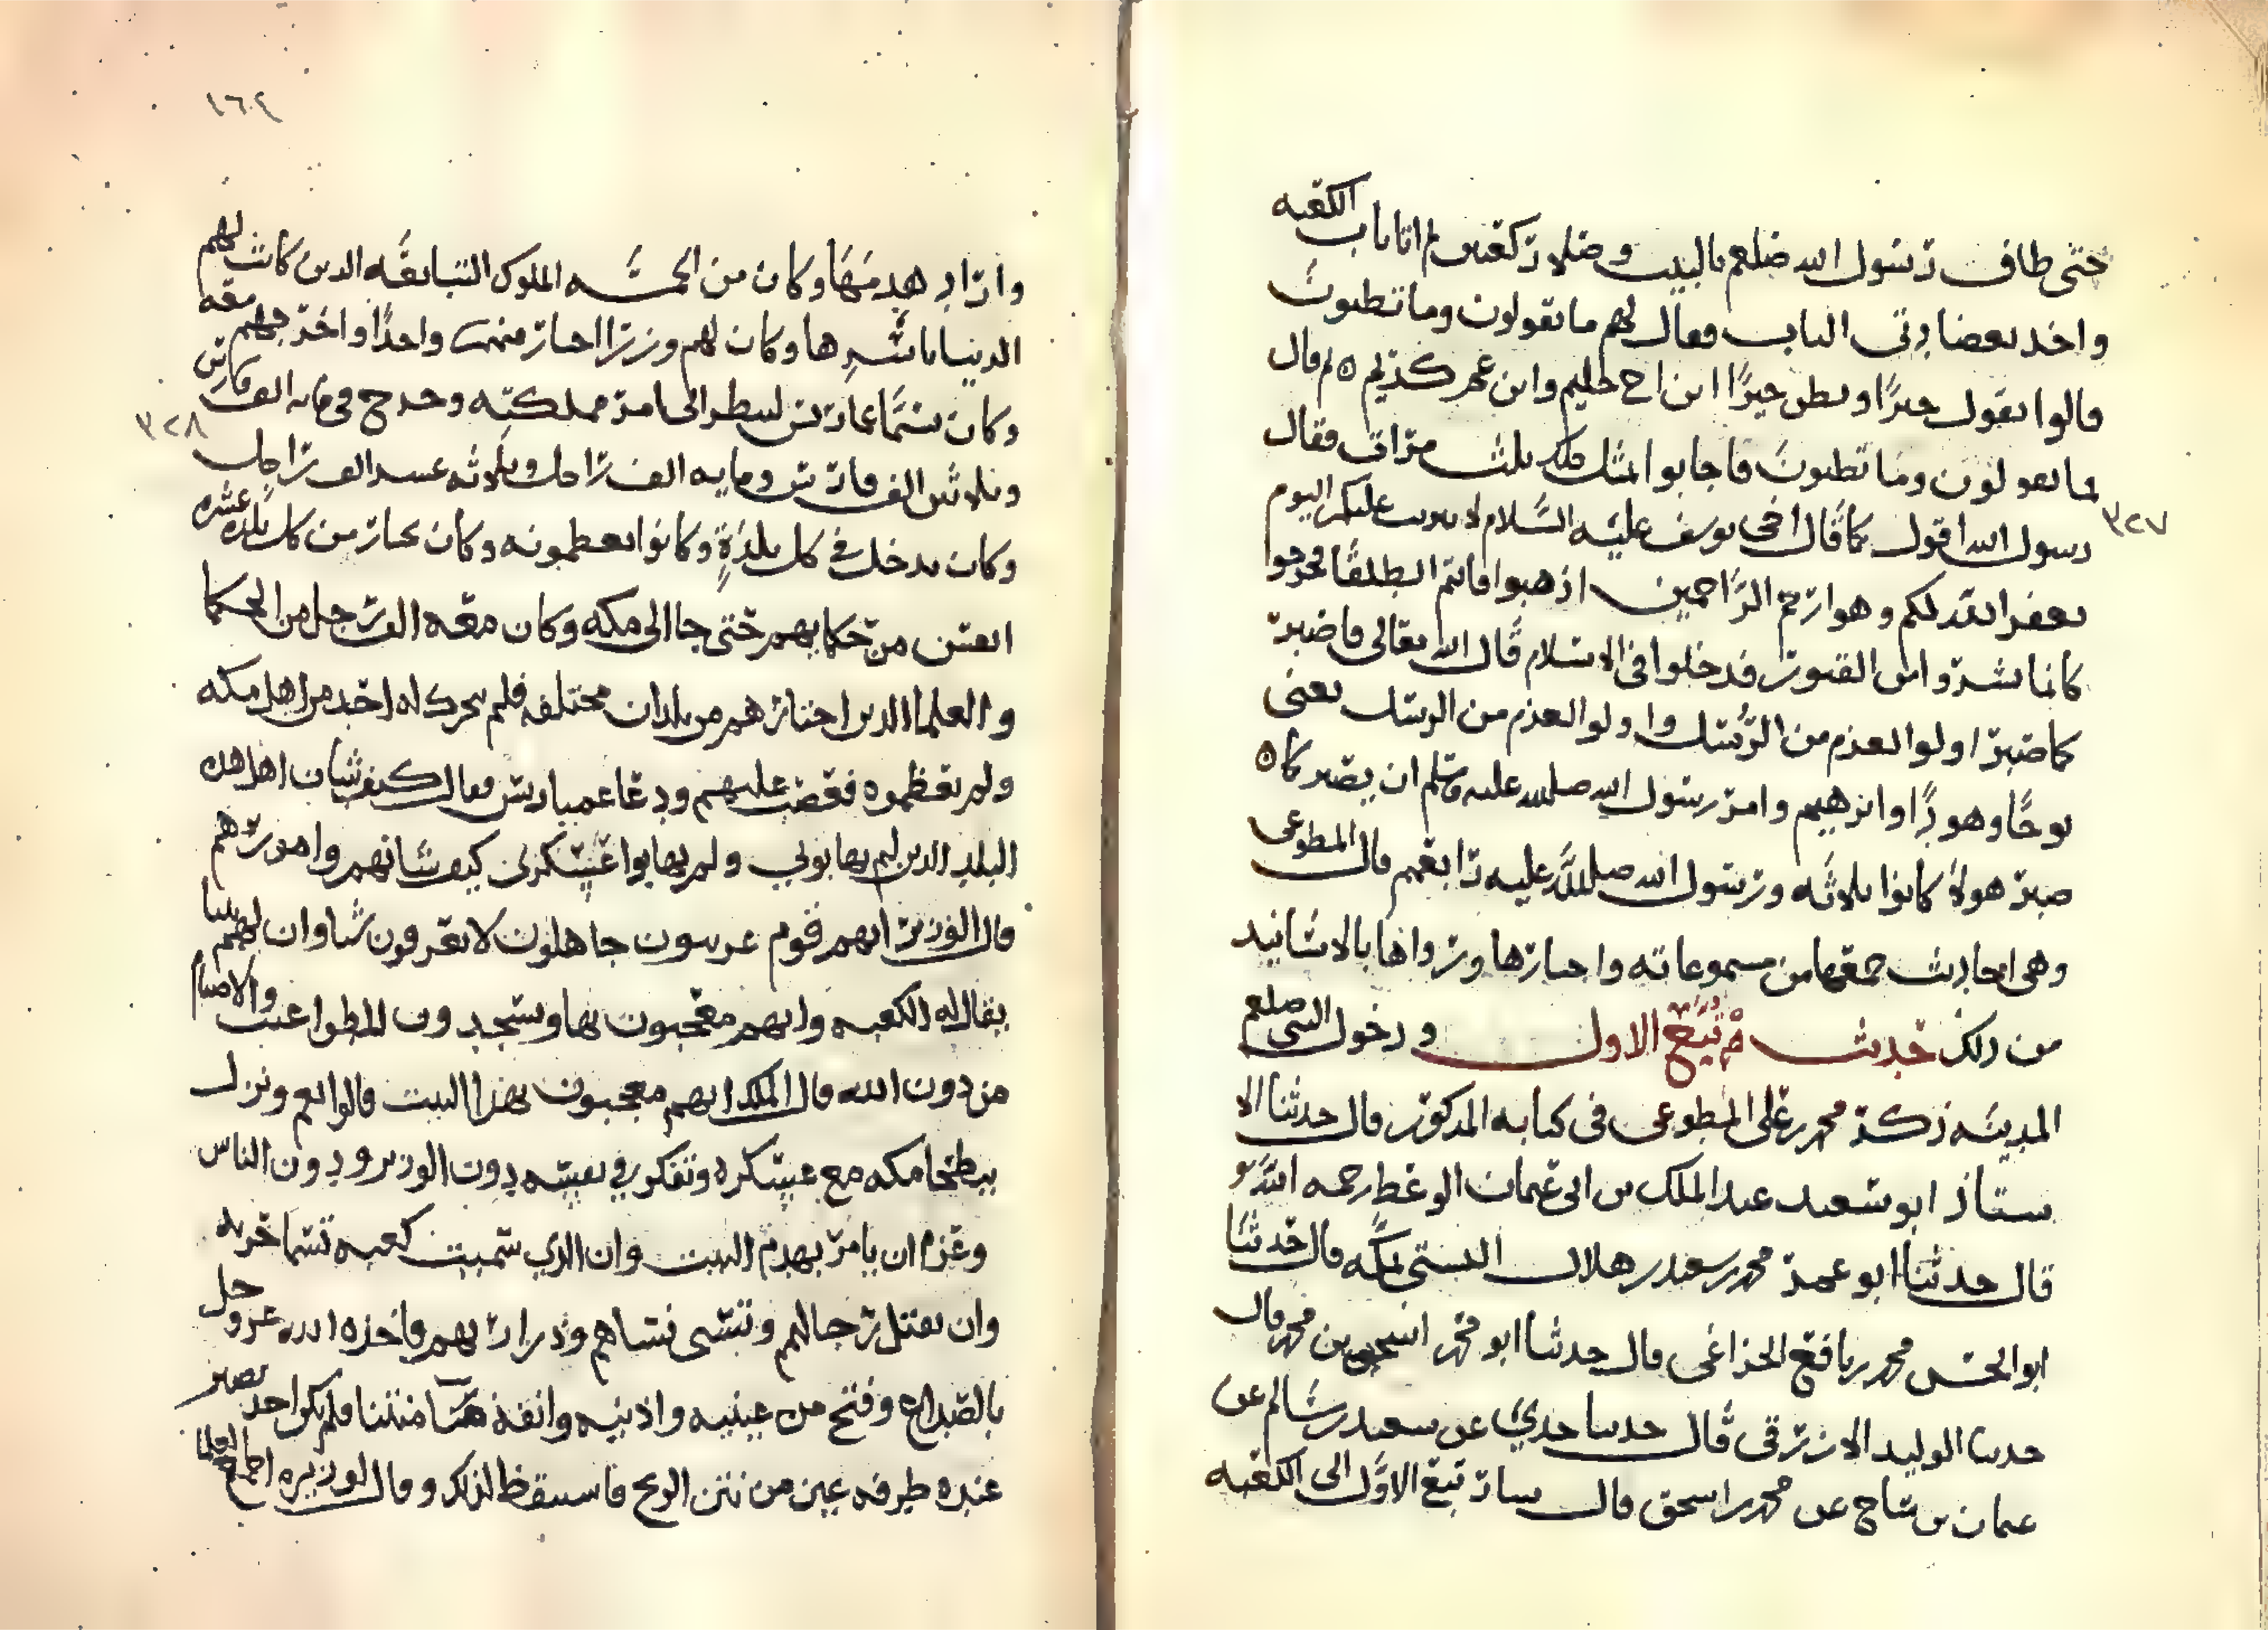 حتى طاف رسول الله صلعم بالبيت وصلا ركعتين ثم اتا باب الكعبه
واخذ بعضادتي الباب فقال لهم ما تقولون وما تظنون
قالوا نقول خيرًا ونظن خيرًا ابن اخ حليم وابن عم كريم ٥ ثم قال
ما تقولون وما تظنون فاجابوا مثل ذلك ثلث مرات فقال
رسول الله اقول كما قال اخي يوسف عليه السلام لا تثريب عليكم اليوم
٣٢٧
يغفر الله لكم وهو ارحم الراحمين اذهبوا فانتم الطلقا فخرجوا
كانما نشروا من القبور فدخلوا في الاسلام قال الله تعالى فاصبر
كما صبر اولوا العزم من الرسل واولوا العزم من الرسل يعني
نوحًا وهودًا وابرهيم وامر رسول الله صلى الله عليه وسلم ان يصبر كما ٥
صبر هولا كانوا ثلاثه ورسول الله صلى الله عليه رابعهم قال المطوعي
وهي احاديث جمعها من مسموعاته واخبارها ورواها بالاسانيد
من ذلك حديث تبع الاول ودخول النبي صلعم
المدينه ذكر محمد بن علي المطوعي في كتابه المذكور قال حدثنا الا
ستاذ ابو سعيد عبد الملك بن ابي عثمان الوعظ رحمه الله
قال حدثنا ابو عمر محمد بن سعيد بن هلال البستي بمكه قال حدثنا
ابو الحسن محمد بن نافع الخزاعي قال حدثنا ابو محمد اسحق بن محمد قال
حدثنا الوليد الازرقي قال حدثنا جدي عن سعيد بن سالم عن
عثمان بن ساج عن محمد بن اسحق قال سار تبع الاول الى الكعبه
١٦٢
واراد هدمها وكان من الخمسه الملوك التبابعه الذين كانت لهم
الدنيا باسرها وكان لهم وزرا اختار منهم واحدًا واخرجهم معه
وكان يسما عمارتس لينظر الى امر مملكته وخرج في مايه الف فارس
٣٢٨
وثلاثين الف فارس ومايه الف راجل وثلاثه عشر الف راجل
وكان يدخل في كل بلدةٍ وكانوا يعظمونه وكان يختار من كل بلده عشره
انفس من حكمايهم حتى جا الى مكه وكان معه الف رجل من الحكما
والعلما الذين اختارهم من بلدان مختلفه فلم يتحرك له احد من اهل مكه
ولم يعظموه فغضب عليهم ودعا عمياريس فقال كيف شان اهل هذه
البلد الذين لم يهابوني ولم يهابوا عسكري كيف شانهم وامورهم
قال الوزير انهم قوم عربيون جاهلون لا يعرفون شيا وان لهم بيتا
يقال له الكعبه وانهم معجبون بها ويسجدون للطواغيت والاصنام
من دون الله قال الملك انهم معجبون بهذا البيت قالوا نعم ونزل
ببطحا مكه مع عسكره وتفكر في نفسه دون الوزير ودون الناس
وعزم ان يامر بهدم البيت وان الذي سميت كعبه تسما خربه
وان يقتل رجالهم وتسبى نساهم وذراريهم فاخذه الله عز وجل
بالصداع وفتح من عينيه واذنيه وانفه ما منتنا فلم يكن احد يصبر
عنده طرفه عين من نتن الريح فاستيقظ لذلك وقال لوزيره اجمع العلما